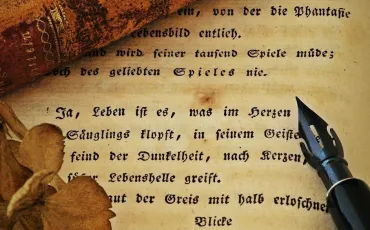 ein, von der die Phantasie
Lebensbild entlieh.
und wird seiner tausend Spiele müde;
des geliebten Spieles nie.
Ja, Leben ist es, was im Herzen
Säuglings klopft, in seinem Geiste
feind der Dunkelheit, nach Kerzen,
Lebenshelle greift.
der Greis mit halb erloschnem
Blicke